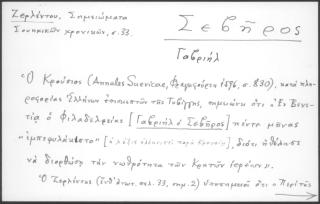 Ζερλέντου, Σημειώματα
Σουηδικῶν χρονικῶν, σ. 33.
Σεβῆρος
Γαβριήλ
Ὁ Κρούσιος (Annales Suevicae, Φραγκφούρτη 1596, σ. 830), κατὰ πλη-
ροφορίας Ἑλλήνων ἐπισκεπτῶν τῆς Τυβίγγης, σημειώνει ὅτι "ἐν Βενε-
τίᾳ ὁ Φιλαδελφείας [Γαβριὴλ ὁ Σεβῆρος] πέντε μῆνας
"ἐμπεφυλάκιστο" [ἡ λέξις ἑλληνιστὶ παρὰ Κρουσίῳ], διότι ἠθέλησε
νὰ διορθώσῃ τὴν νωθρότητα τῶν Κρητῶν ἱερέων".
Ὁ Ζερλέντης (ἔνθ' ἀνωτ. σελ. 33, σημ. 2) ὑποσημειοῖ ὅτι ὁ "Περίτης